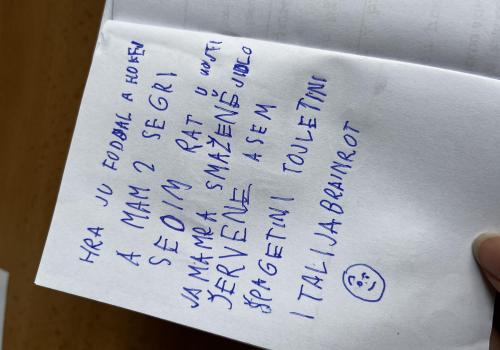 HRA JU FODBAL A HOKEJ
A MAM 2 SEGRI
SEDIM RAT U
JA MAM RA SMAŽENĚ JIDLO
ČERVENE A SEM
ŠPAGETINI TOJLETINI
ITALIJA BRAINROT